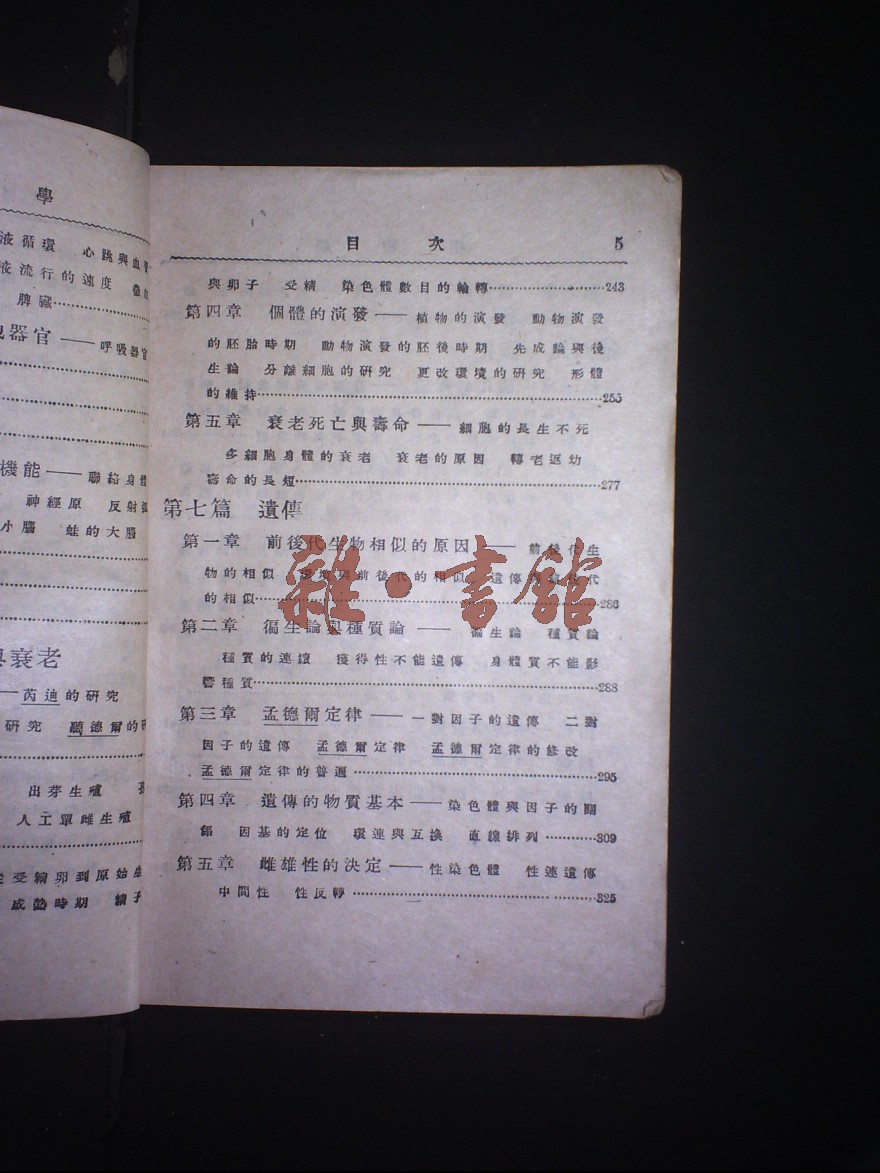 學
液循環 心跳與血管
液流行的速度
脾臟
器官——呼吸器官
機能——聯絡身體
神經原 反射弧
小腦 蛙的大腦
與衰老
——芮迪的研究
研究 聽德爾的研
出芽生殖
人工單雌生殖
從受精卵到原始生
成熟時期 精子
目 次 5
與卵子 受精 染色體數目的輪轉……243
第四章 個體的演發——植物的演發 動物演發
的胚胎時期 動物演發的胚後時期 先成論與後
生論 分離細胞的研究 更改環境的研究 形體
的維持……255
第五章 衰老死亡與壽命——細胞的長生不死
多細胞身體的衰老 衰老的原因 轉老返幼
壽命的長短……277
第七篇 遺傳
第一章 前後代生物相似的原因——前後代生
物的相似 環境與前後代的相似 遺傳與前後代
的相似……286
雜·書館
第二章 徧生論與種質論——徧生論 種質論
種質的連續 獲得性不能遺傳 身體質不能影
響種質……288
第三章 孟德爾定律——一對因子的遺傳 二對
因子的遺傳 孟德爾定律 孟德爾定律的修改
孟德爾定律的普遍……295
第四章 遺傳的物質基本——染色體與因子的關
係 因基的定位 環連與互換 直線排列……309
第五章 雌雄性的決定——性染色體 性連遺傳
中間性 性反轉……325